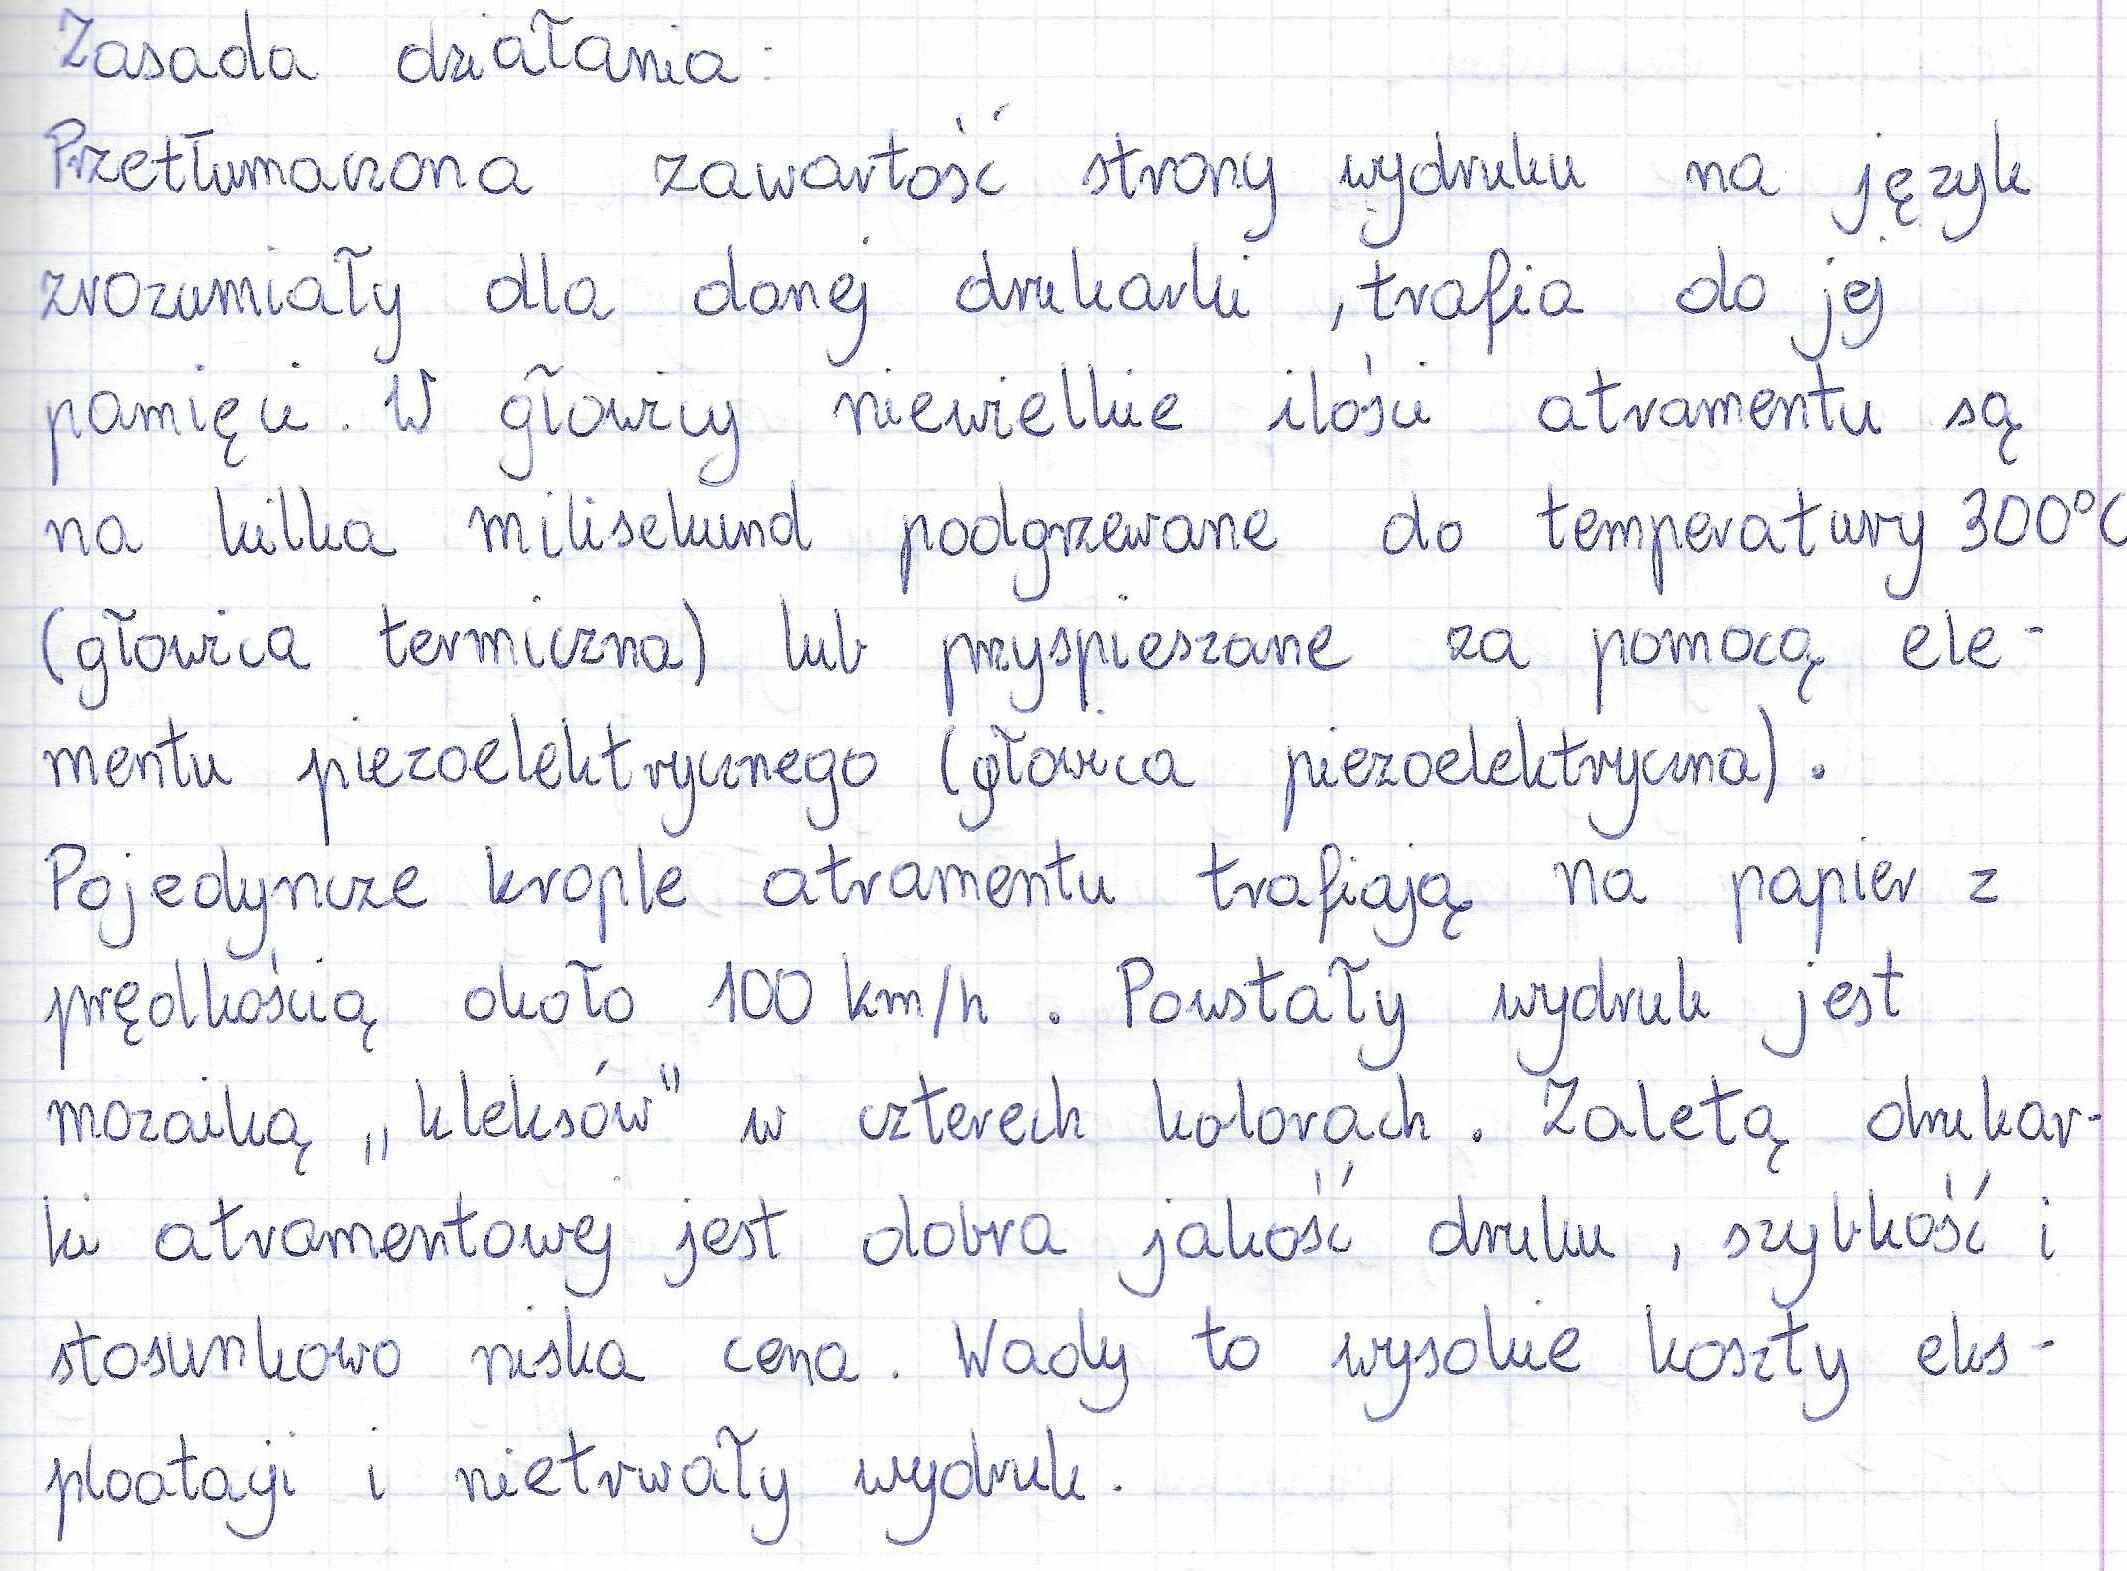 Zasada działania:
Przetłumaczona zawartość strony wydruku na język
zrozumiały dla danej drukarki, trafia do jej
pamięci. W głowicy niewielkie ilości atramentu są
na kilka milisekund podgrzewane do temperatury 300°C
(głowica termiczna) lub przyspieszane za pomocą ele-
mentu piezoelektrycznego (głowica piezoelektryczna).
Pojedyncze krople atramentu trafiają na papier z
prędkością około 100 km/h. Powstały wydruk jest
mozaiką „kleksów" w czterech kolorach. Zaletą drukar-
ki atramentowej jest dobra jakość druku, szybkość i
stosunkowo niska cena. Wady to wysokie koszty eks-
ploatacji i nietrwały wydruk.